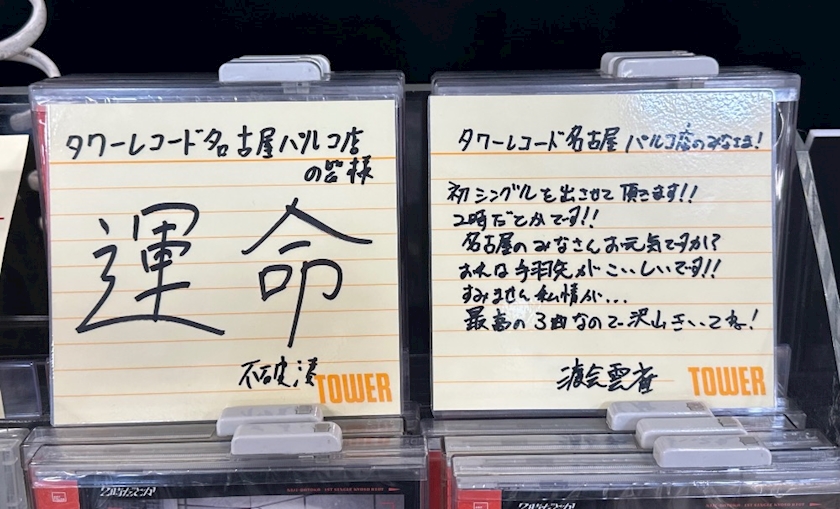 タワーレコード名古屋パルコ店
の皆様
運命
不破湊
TOWER
タワーレコード名古屋パルコ店のみなさま!
初シングルを出させて頂きます!!
2時だとかです!!
名古屋のみなさんお元気ですか?
おれは手羽先がこいしいです!!
すみません私情が...
最高の3曲なので沢山きいてね!
渡会雲雀
TOWER